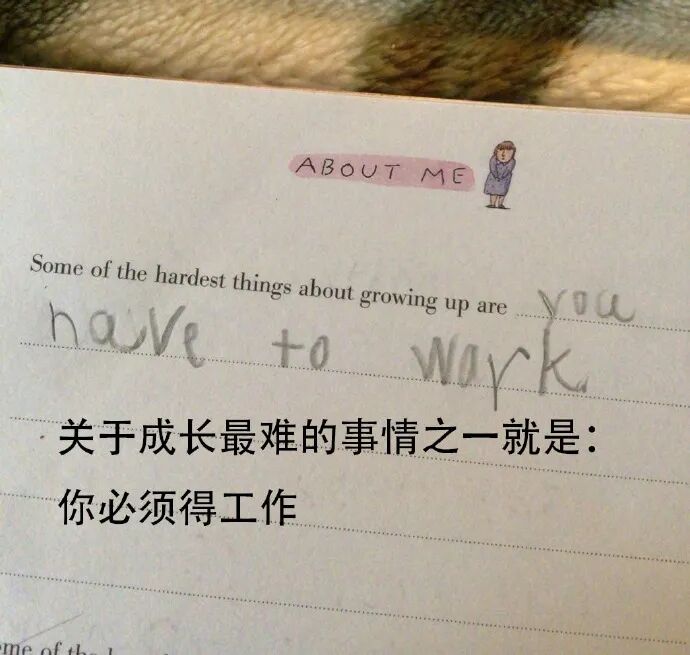 ABOUT ME
Some of the hardest things about growing up are you
have to work.
关于成长最难的事情之一就是：
你必须得工作